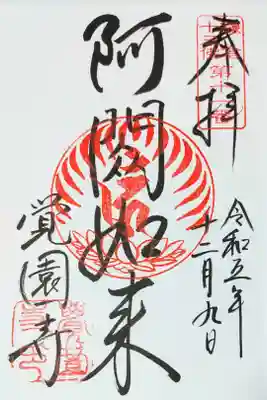 奉拝
令和五年
十二月九日
阿閦如来
覚園寺